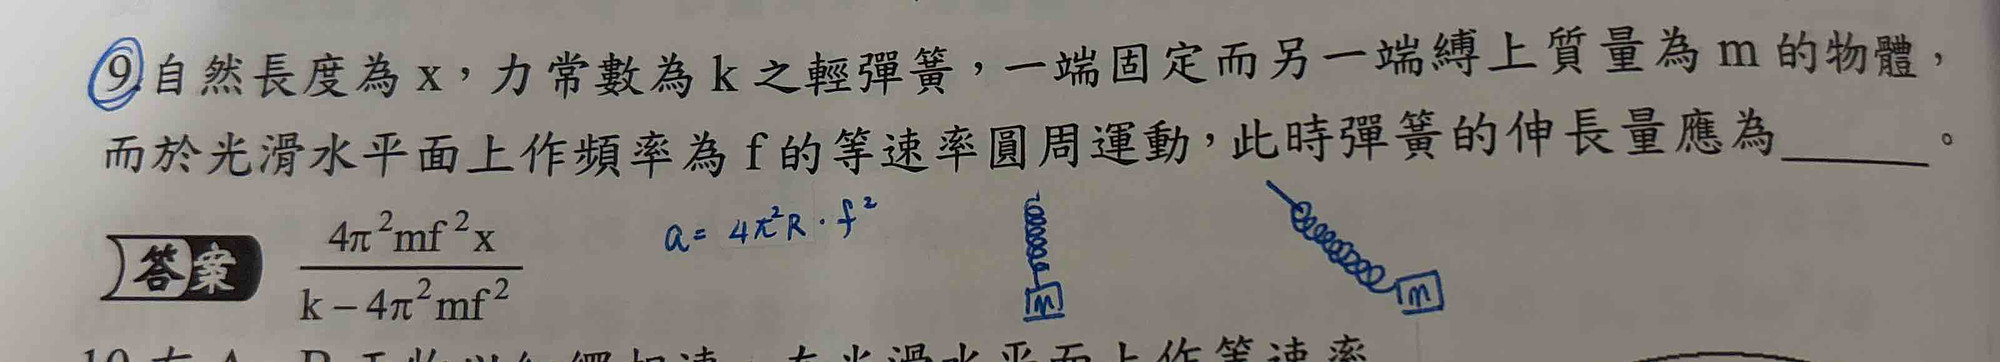 9.自然長度為 x，力常數為 k 之輕彈簧，一端固定而另一端縛上質量為 m 的物體，
而於光滑水平面上作頻率為 f 的等速率圓周運動，此時彈簧的伸長量應為______。
答案 4π²mf²x / k－4π²mf²
a = 4π²R · f²
m
m